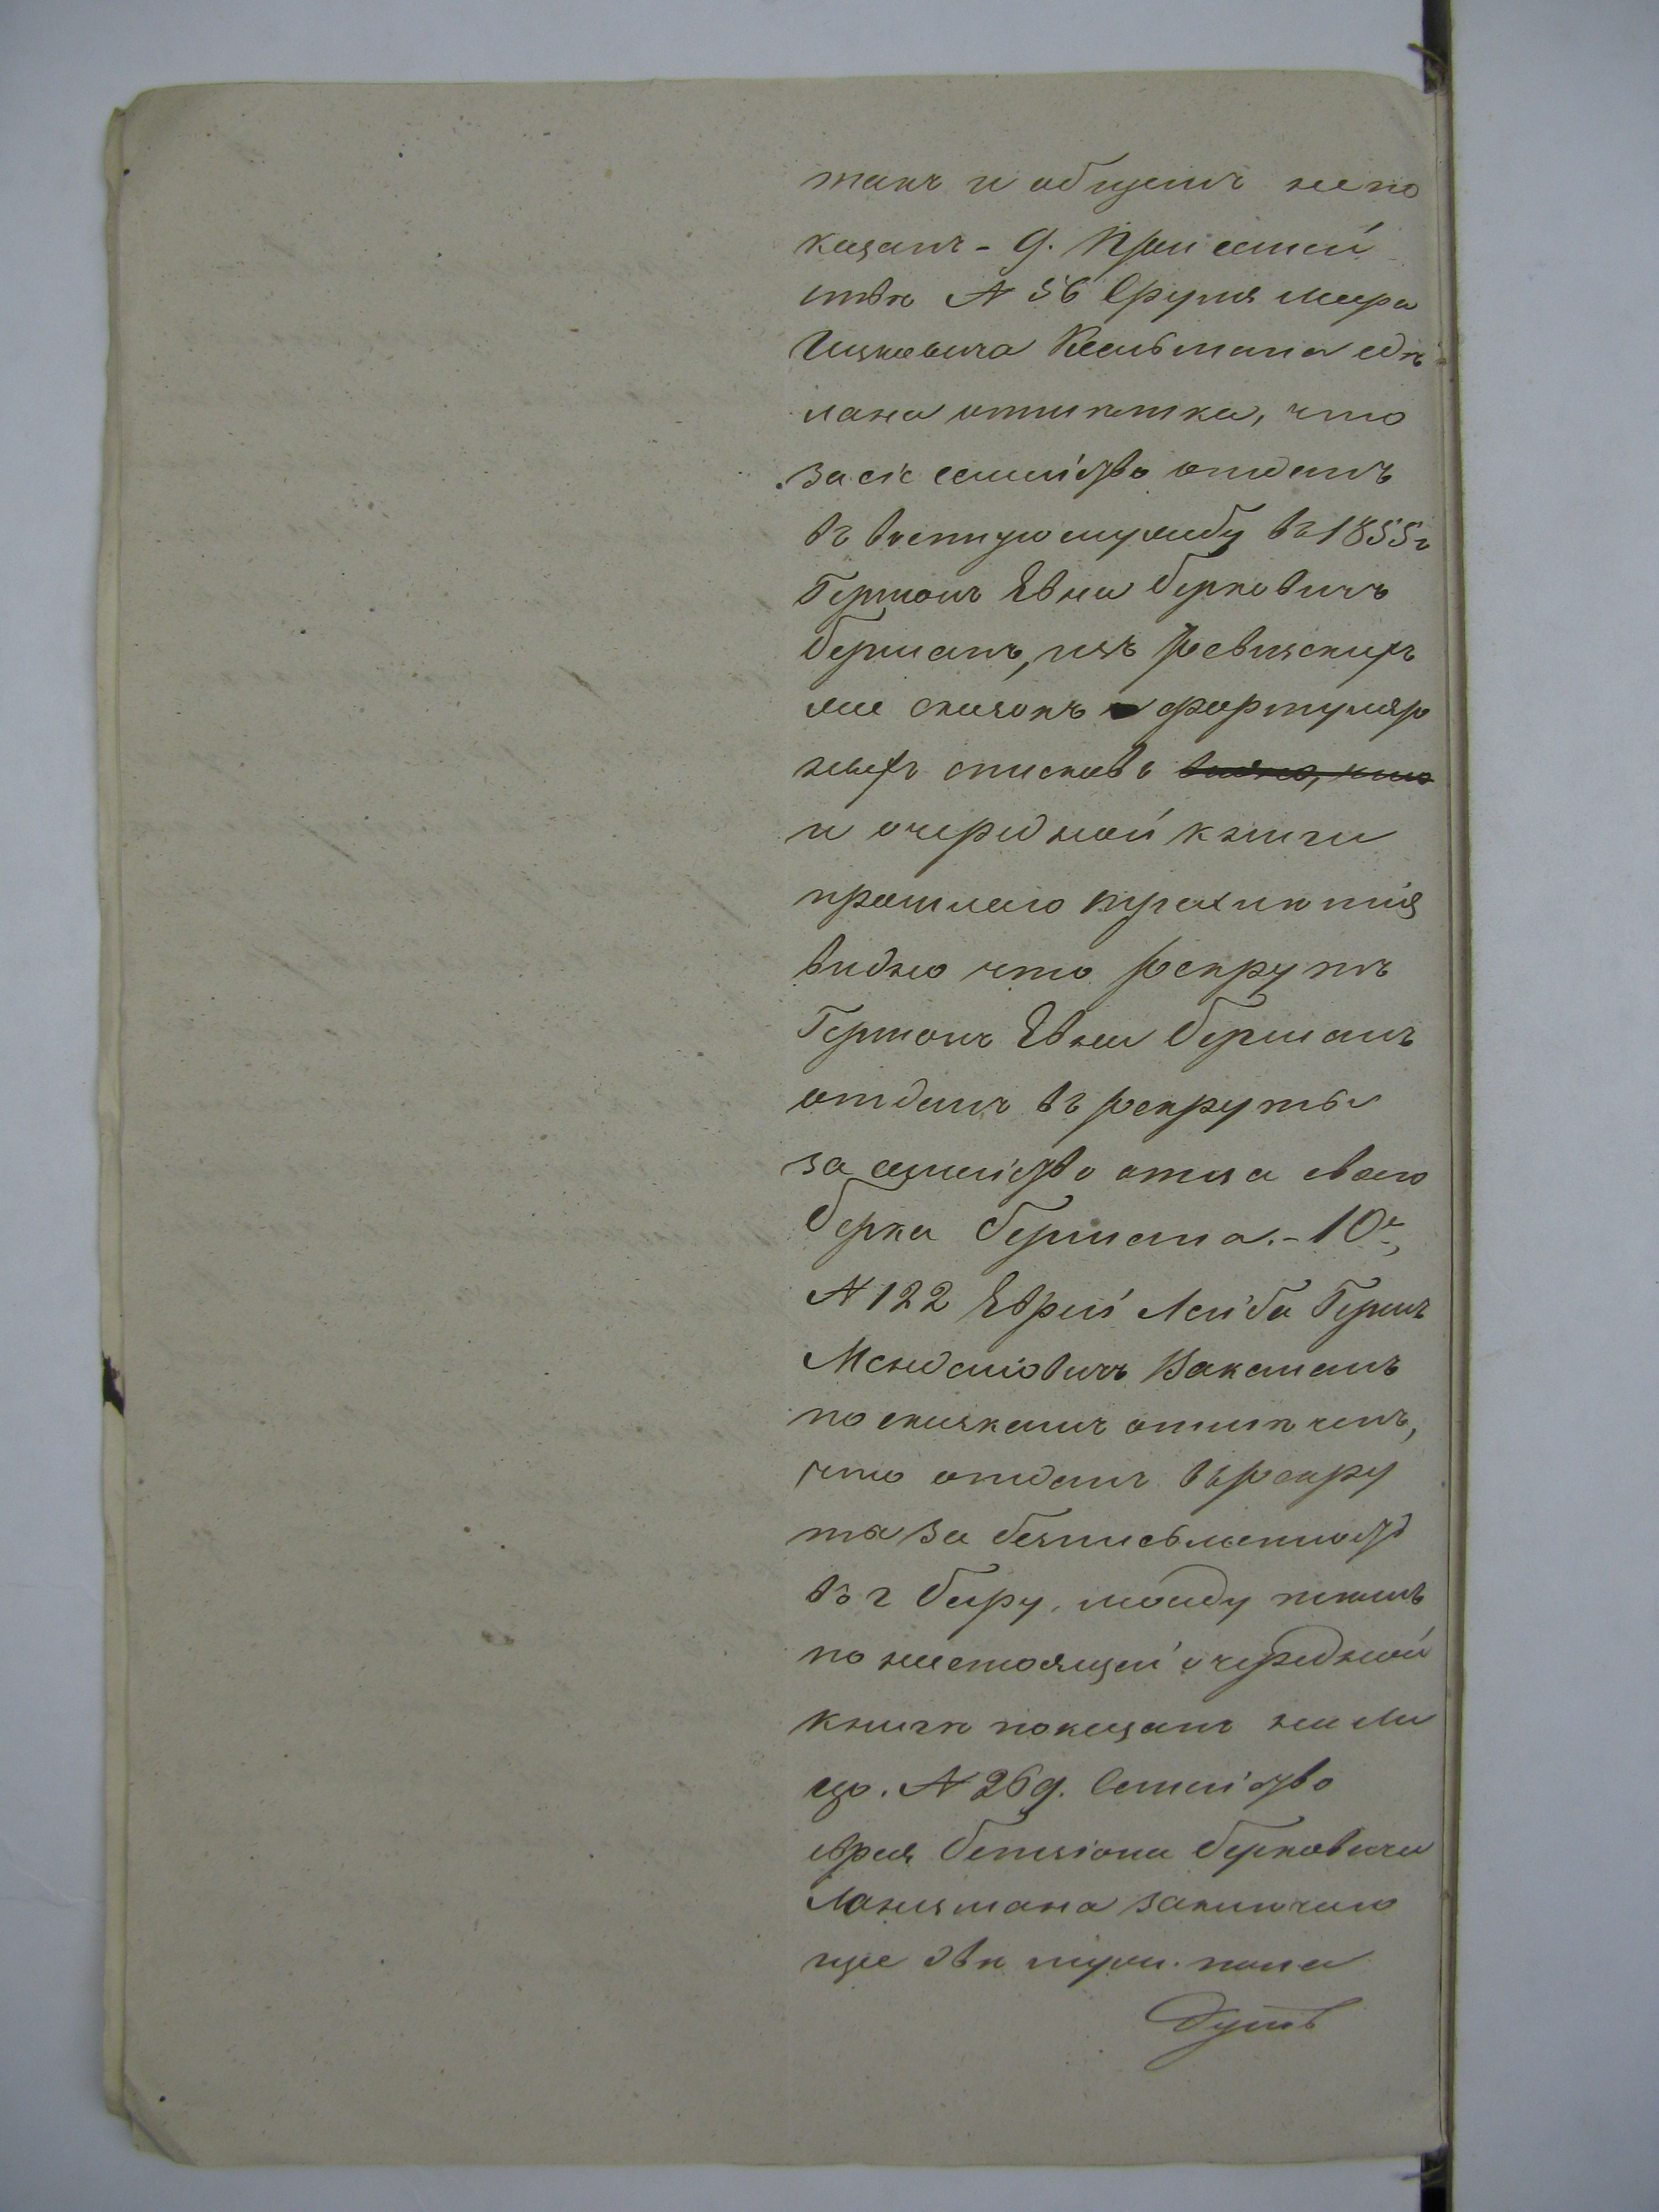 такъ и общемъ непо
казанъ - 9. При семей
ствѣ № 56 Сруля Меера
Ицковича Кельмана сдѣ
лана отмѣтка, что
за сіе семейство отданъ
въ военную службу въ 1855 г
Гершонъ Евна Берковичъ
Берманъ, изъ ревизскихъ
же сказокъ формуляр
ныхъ списковъ видно, что
и очередной книги
прошлаго трехлѣтія
видно что рекрутъ
Гершонъ Евна Берманъ
отданъ въ рекруты
за семейство отца своего
Берка Бермана. - 10е,
№ 122 Еврей Лейба Гершъ
Менделіовичъ Ваксманъ
по сказкамъ отмѣченъ,
что отданъ въ рекру
ты за безписьменность
въ г Бару, между тѣмъ
по настоящей очередной
книгѣ показанъ на ли
цо. № 269. Семейство
еврея Бенціона Берковича
Ланцмана заключаю
щее двѣ муж. пола
душъ